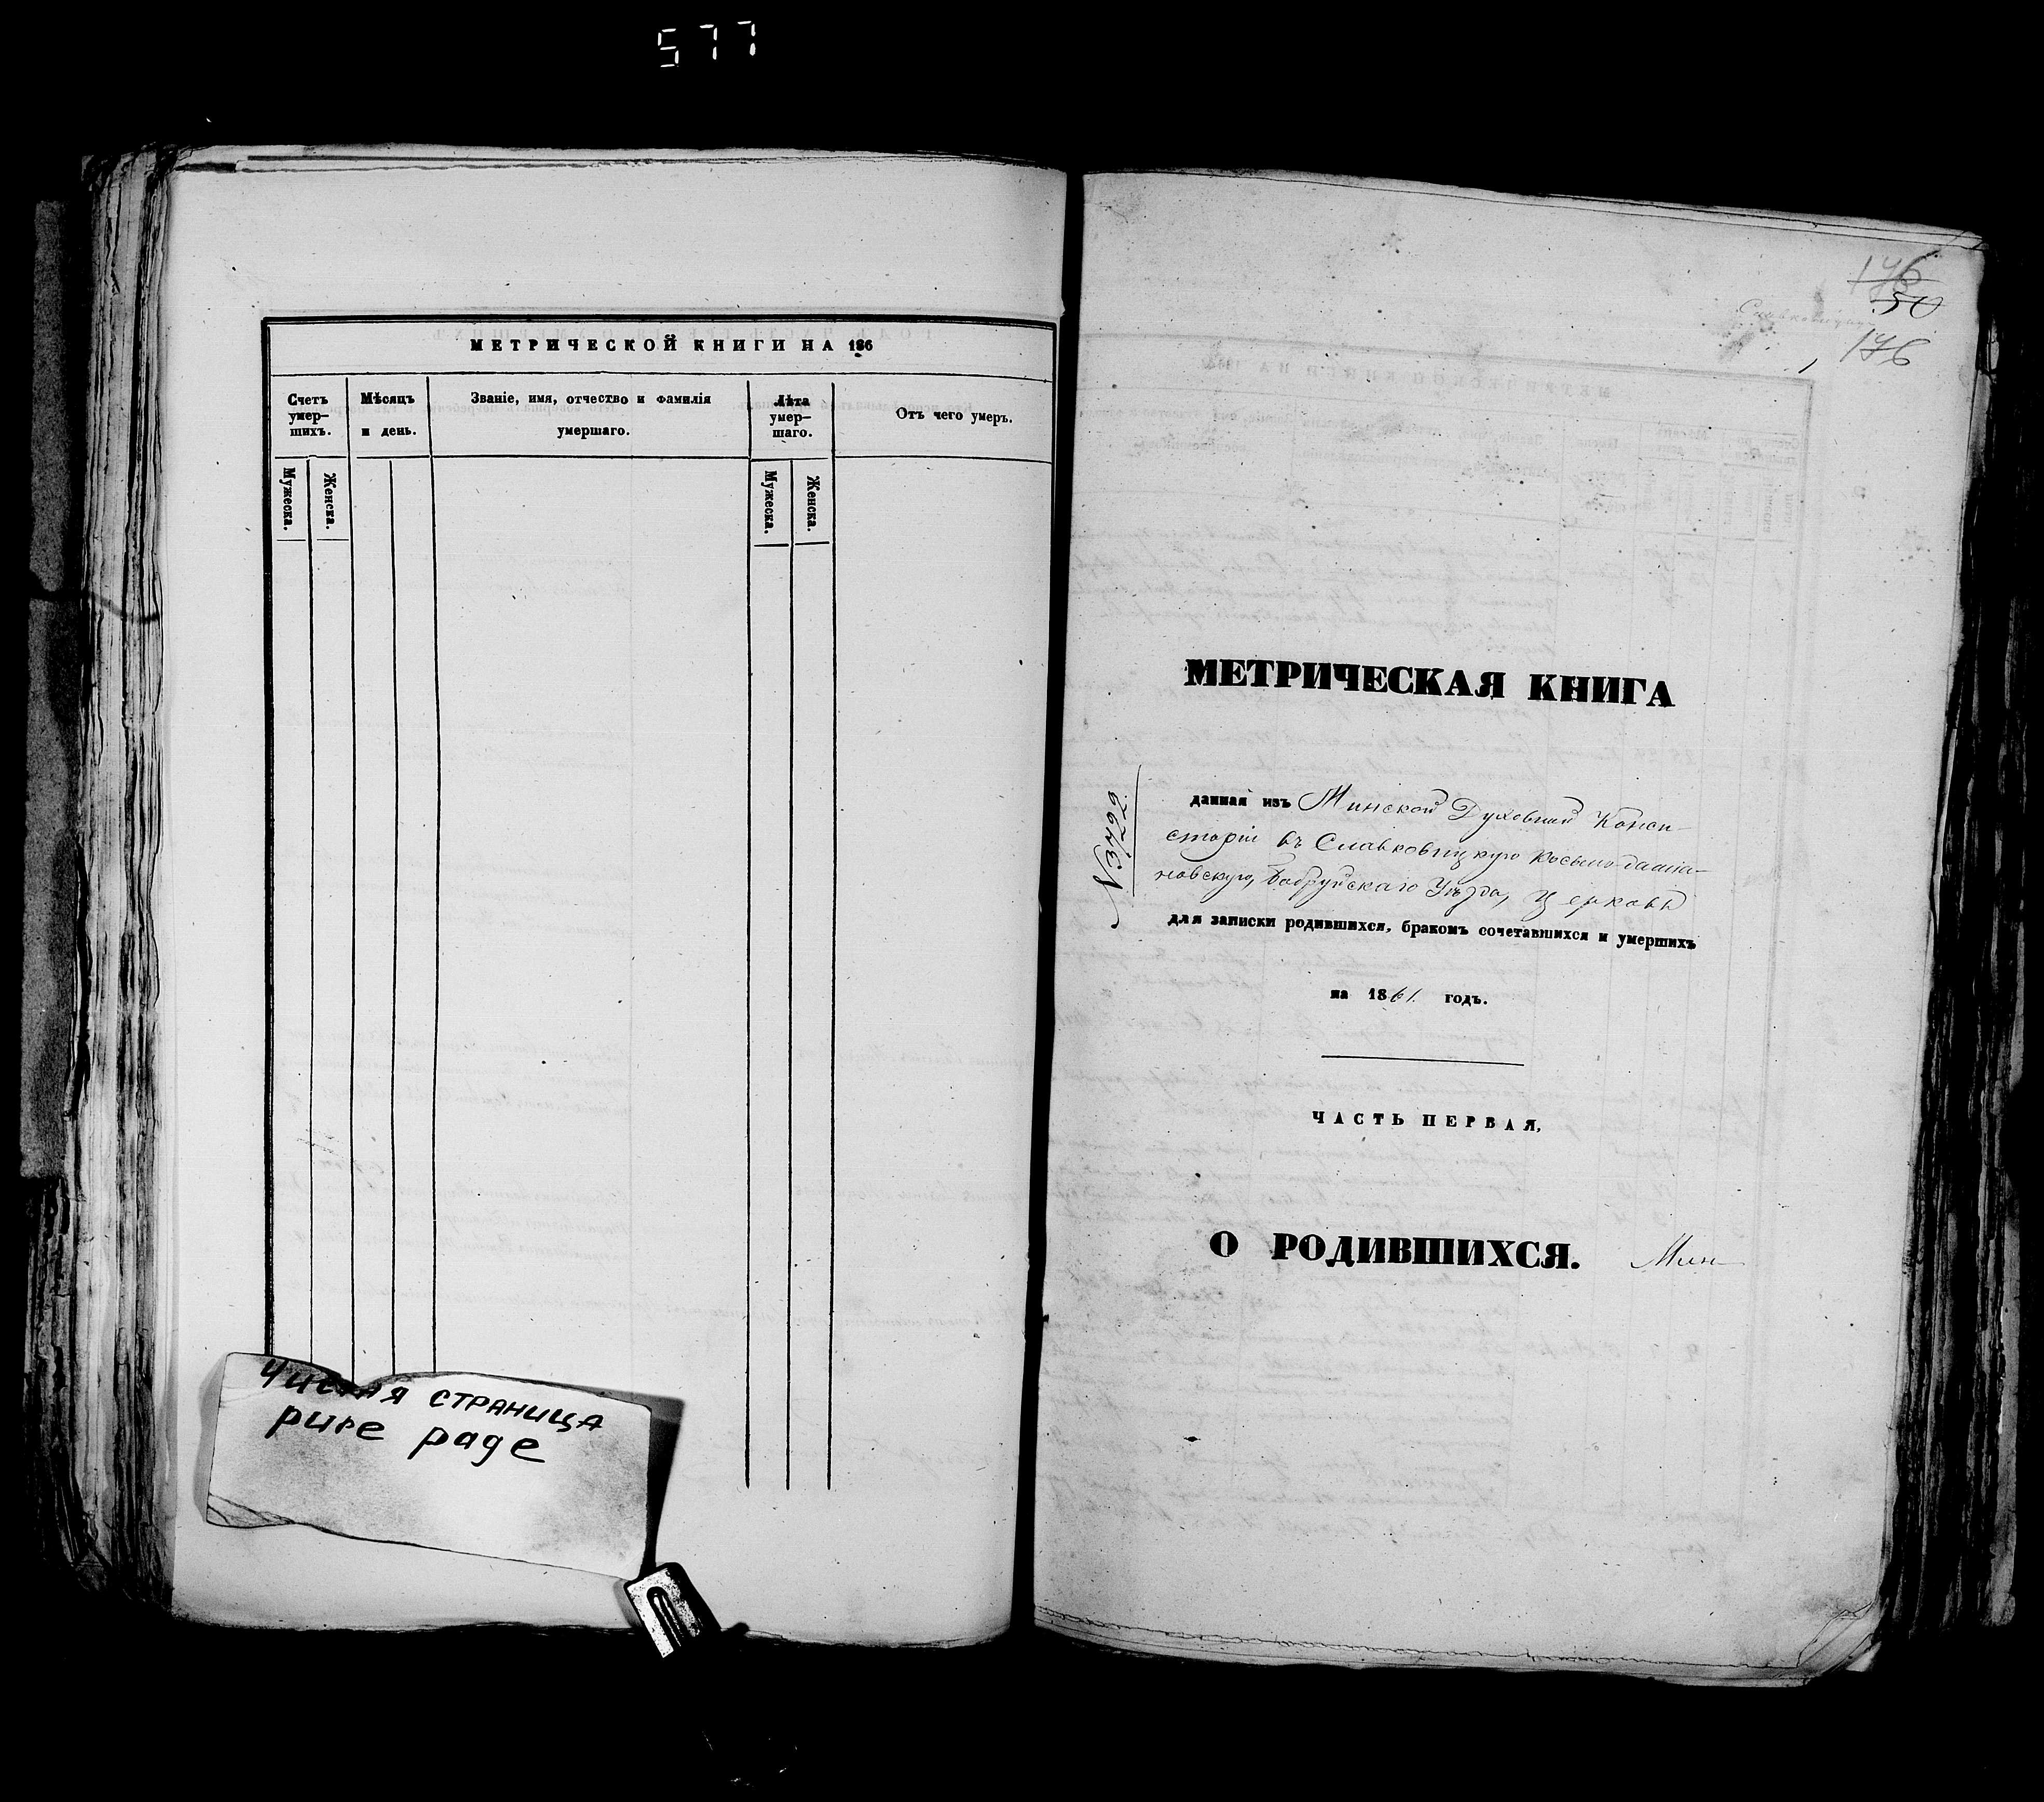 577
МЕТРИЧЕСКОЙ КНИГИ НА 186
Счетъ умер-шихъ.
Мѣсяцъ и день.
Званіе, имя, отчество и фамилія умершаго.
Лѣта умер-шаго.
Отъ чего умеръ.
Мужеска.
Женска.
Мужеска.
Женска.
Чистая страница
pure page
176
50
176
МЕТРИЧЕСКАЯ КНИГА
№ 3472
данная изъ Минской Духовной Конси-
сторіи въ Славковицкую Косьмо-Даміа-
новскую, Бобруйскаго Уѣзда, Церковь
для записки родившихся, бракомъ сочетавшихся и умершихъ
на 1861. годъ.
ЧАСТЬ ПЕРВАЯ,
О РОДИВШИХСЯ. Мин